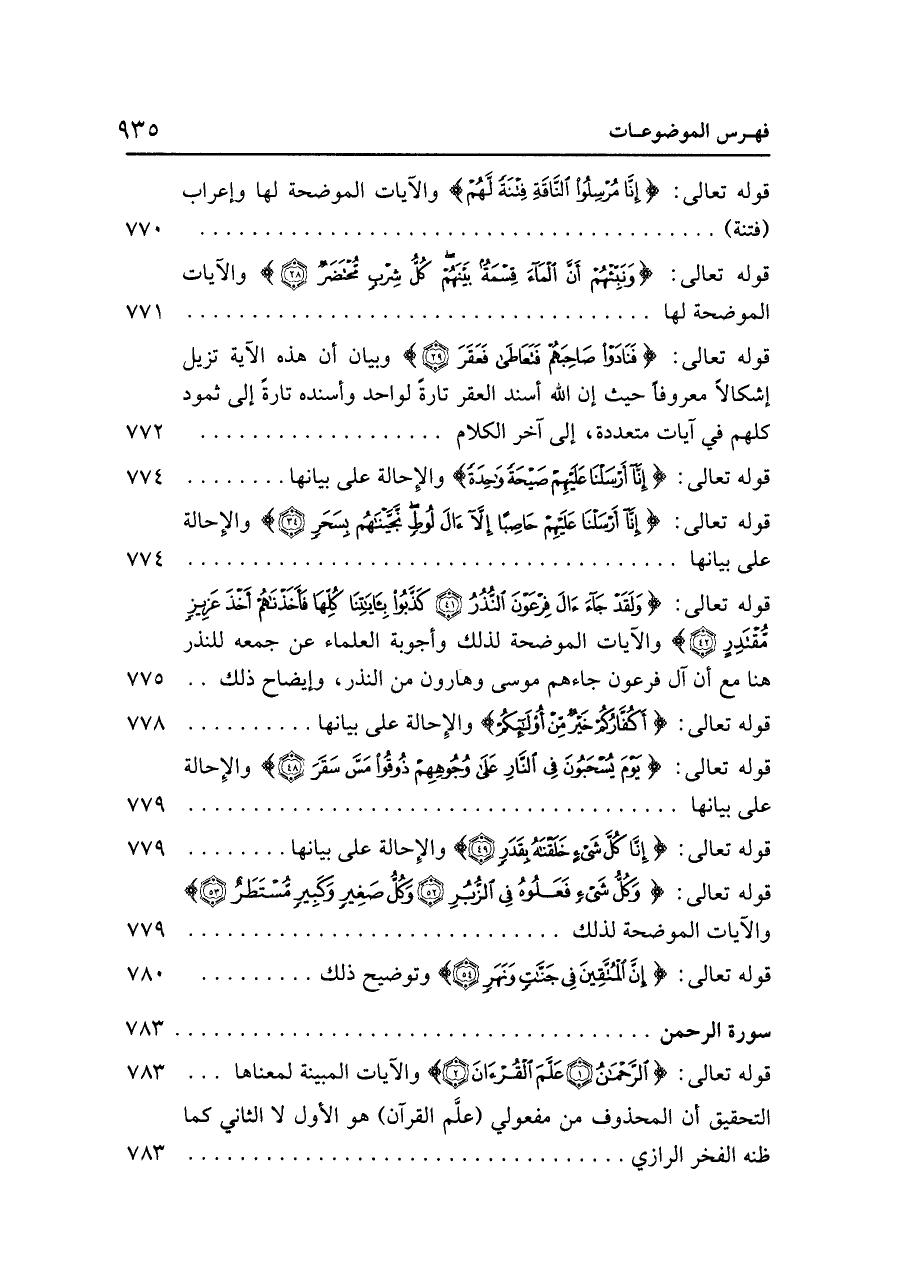 فهـرس الموضوعـات ٩٣٥
قوله تعالى: ﴿ إِنَّا مُرْسِلُوا۟ ٱلنَّاقَةِ فِتْنَةً لَّهُمْ ﴾ والآيات الموضحة لها وإعراب
(فتنة) . . . . . . . . . . . . . . . . . . . . ٧٧٠
قوله تعالى: ﴿ وَنَبِّئْهُمْ أَنَّ ٱلْمَآءَ قِسْمَةٌۢ بَيْنَهُمْ ۖ كُلُّ شِرْبٍ مُّحْتَضَرٌ ۝٢٨ ﴾ والآيات
الموضحة لها . . . . . . . . . . . . . . . . . . . . ٧٧١
قوله تعالى: ﴿ فَنَادَوْا۟ صَاحِبَهُمْ فَتَعَاطَىٰ فَعَقَرَ ۝٢٩ ﴾ وبيان أن هذه الآية تزيل
إشكالاً معروفاً حيث إن الله أسند العقر تارةً لواحد وأسنده تارةً إلى ثمود
كلهم في آيات متعددة، إلى آخر الكلام . . . . . . . . . . . . . . . . . . . ٧٧٢
قوله تعالى: ﴿ إِنَّآ أَرْسَلْنَا عَلَيْهِمْ صَيْحَةً وَٰحِدَةً ﴾ والإحالة على بيانها . . . . . . . . ٧٧٤
قوله تعالى: ﴿ إِنَّآ أَرْسَلْنَا عَلَيْهِمْ حَاصِبًا إِلَّآ ءَالَ لُوطٍ ۖ نَّجَّيْنَٰهُم بِسَحَرٍ ۝٣٤ ﴾ والإحالة
على بيانها . . . . . . . . . . . . . . . . . . . . ٧٧٤
قوله تعالى: ﴿ وَلَقَدْ جَآءَ ءَالَ فِرْعَوْنَ ٱلنُّذُرُ ۝٤١ كَذَّبُوا۟ بِـَٔايَٰتِنَا كُلِّهَا فَأَخَذْنَٰهُمْ أَخْذَ عَزِيزٍ
مُّقْتَدِرٍ ۝٤٢ ﴾ والآيات الموضحة لذلك وأجوبة العلماء عن جمعه للنذر
هنا مع أن آل فرعون جاءهم موسى وهارون من النذر، وإيضاح ذلك . . ٧٧٥
قوله تعالى: ﴿ أَكُفَّارُكُمْ خَيْرٌ مِّنْ أُو۟لَٰٓئِكُمْ ﴾ والإحالة على بيانها . . . . . . . . . . ٧٧٨
قوله تعالى: ﴿ يَوْمَ يُسْحَبُونَ فِى ٱلنَّارِ عَلَىٰ وُجُوهِهِمْ ذُوقُوا۟ مَسَّ سَقَرَ ۝٤٨ ﴾ والإحالة
على بيانها . . . . . . . . . . . . . . . . . . . . ٧٧٩
قوله تعالى: ﴿ إِنَّا كُلَّ شَىْءٍ خَلَقْنَٰهُ بِقَدَرٍ ۝٤٩ ﴾ والإحالة على بيانها . . . . . . . . ٧٧٩
قوله تعالى: ﴿ وَكُلُّ شَىْءٍ فَعَلُوهُ فِى ٱلزُّبُرِ ۝٥٢ وَكُلُّ صَغِيرٍ وَكَبِيرٍ مُّسْتَطَرٌ ۝٥٣ ﴾
والآيات الموضحة لذلك . . . . . . . . . . . . . . . . . . . . ٧٧٩
قوله تعالى: ﴿ إِنَّ ٱلْمُتَّقِينَ فِى جَنَّٰتٍ وَنَهَرٍ ۝٥٤ ﴾ وتوضيح ذلك . . . . . . . . . ٧٨٠
سورة الرحمن . . . . . . . . . . . . . . . . . . . . ٧٨٣
قوله تعالى: ﴿ ٱلرَّحْمَٰنُ ۝١ عَلَّمَ ٱلْقُرْءَانَ ۝٢ ﴾ والآيات المبينة لمعناها . . . ٧٨٣
التحقيق أن المحذوف من مفعولي (علَّم القرآن) هو الأول لا الثاني كما
ظنه الفخر الرازي . . . . . . . . . . . . . . . . . . . . ٧٨٣